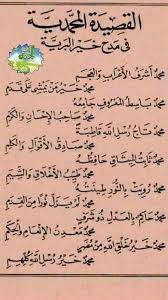 القصيدة المحمدية
في مدح خير البرية
محمد أشرف الأعراب والعجم
محمد خير من يمشي على قدم
محمد باسط المعروف جامعه
محمد صاحب الإحسان والكرم
محمد تاج رسل الله قاطبة
محمد صادق الأقوال والكلم
محمد ثابت الميثاق حافظه
محمد طيب الأخلاق والشيم
محمد رويت بالنور طينته
محمد لم يزل نورا من القدم
محمد حاكم بالعدل ذو شرف
محمد معدن الإنعام والحكم
محمد خير خلق الله من مضر
محمد خير رسل الله كلهم